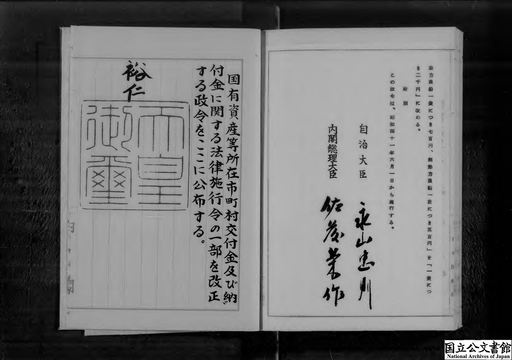 国有資産等所在市町村交付金及び納
付金に関する法律施行令の一部を改正
する政令をここに公布する。
裕仁
天皇
御璽
附則
この政令は、昭和四十一年六月一日から施行する。
自治大臣
永山忠則
内閣総理大臣
佐藤榮作
国立公文書館
National Archives of Japan